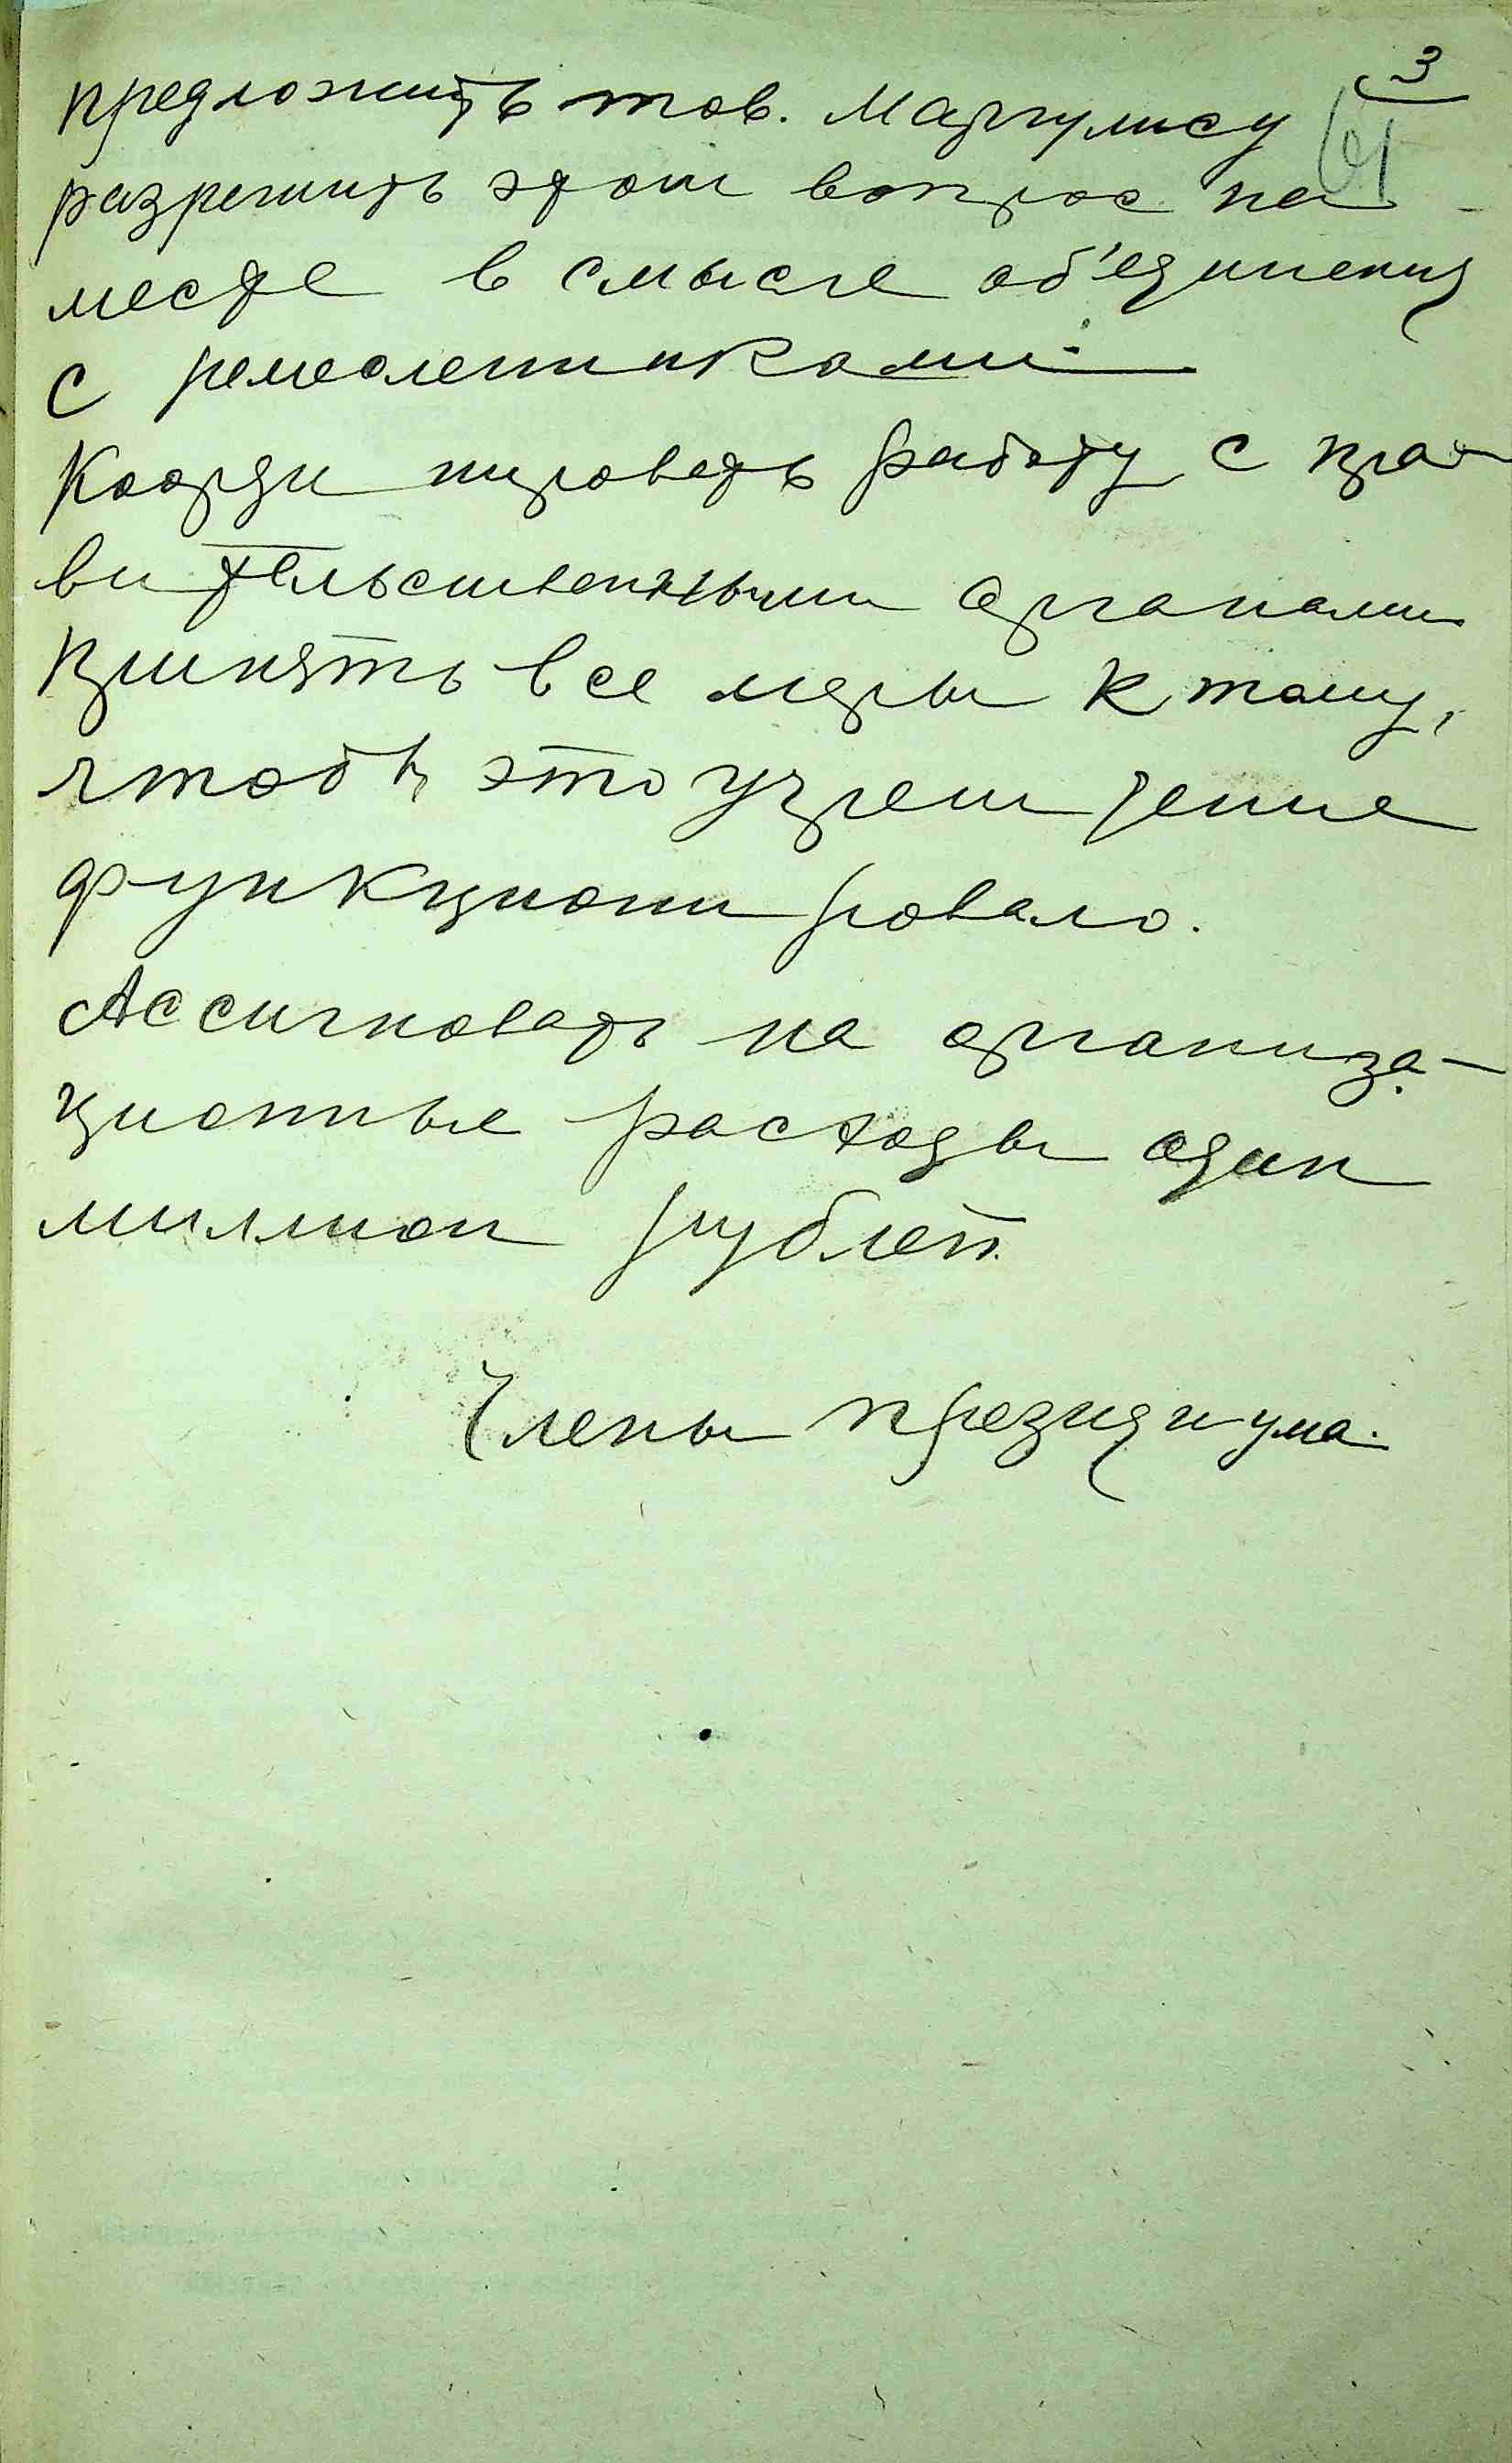 3
предложить тов. Маргулису
разрешить этот вопрос на
месте в смысле об'единения
с ремесленниками.
Координировать работу с пра-
вительственными органами
Принять все меры к тому,
чтобы это учреждение
функционировало.
Ассигновать на организа-
ционные расходы один
миллион рублей.
Члены президиума.